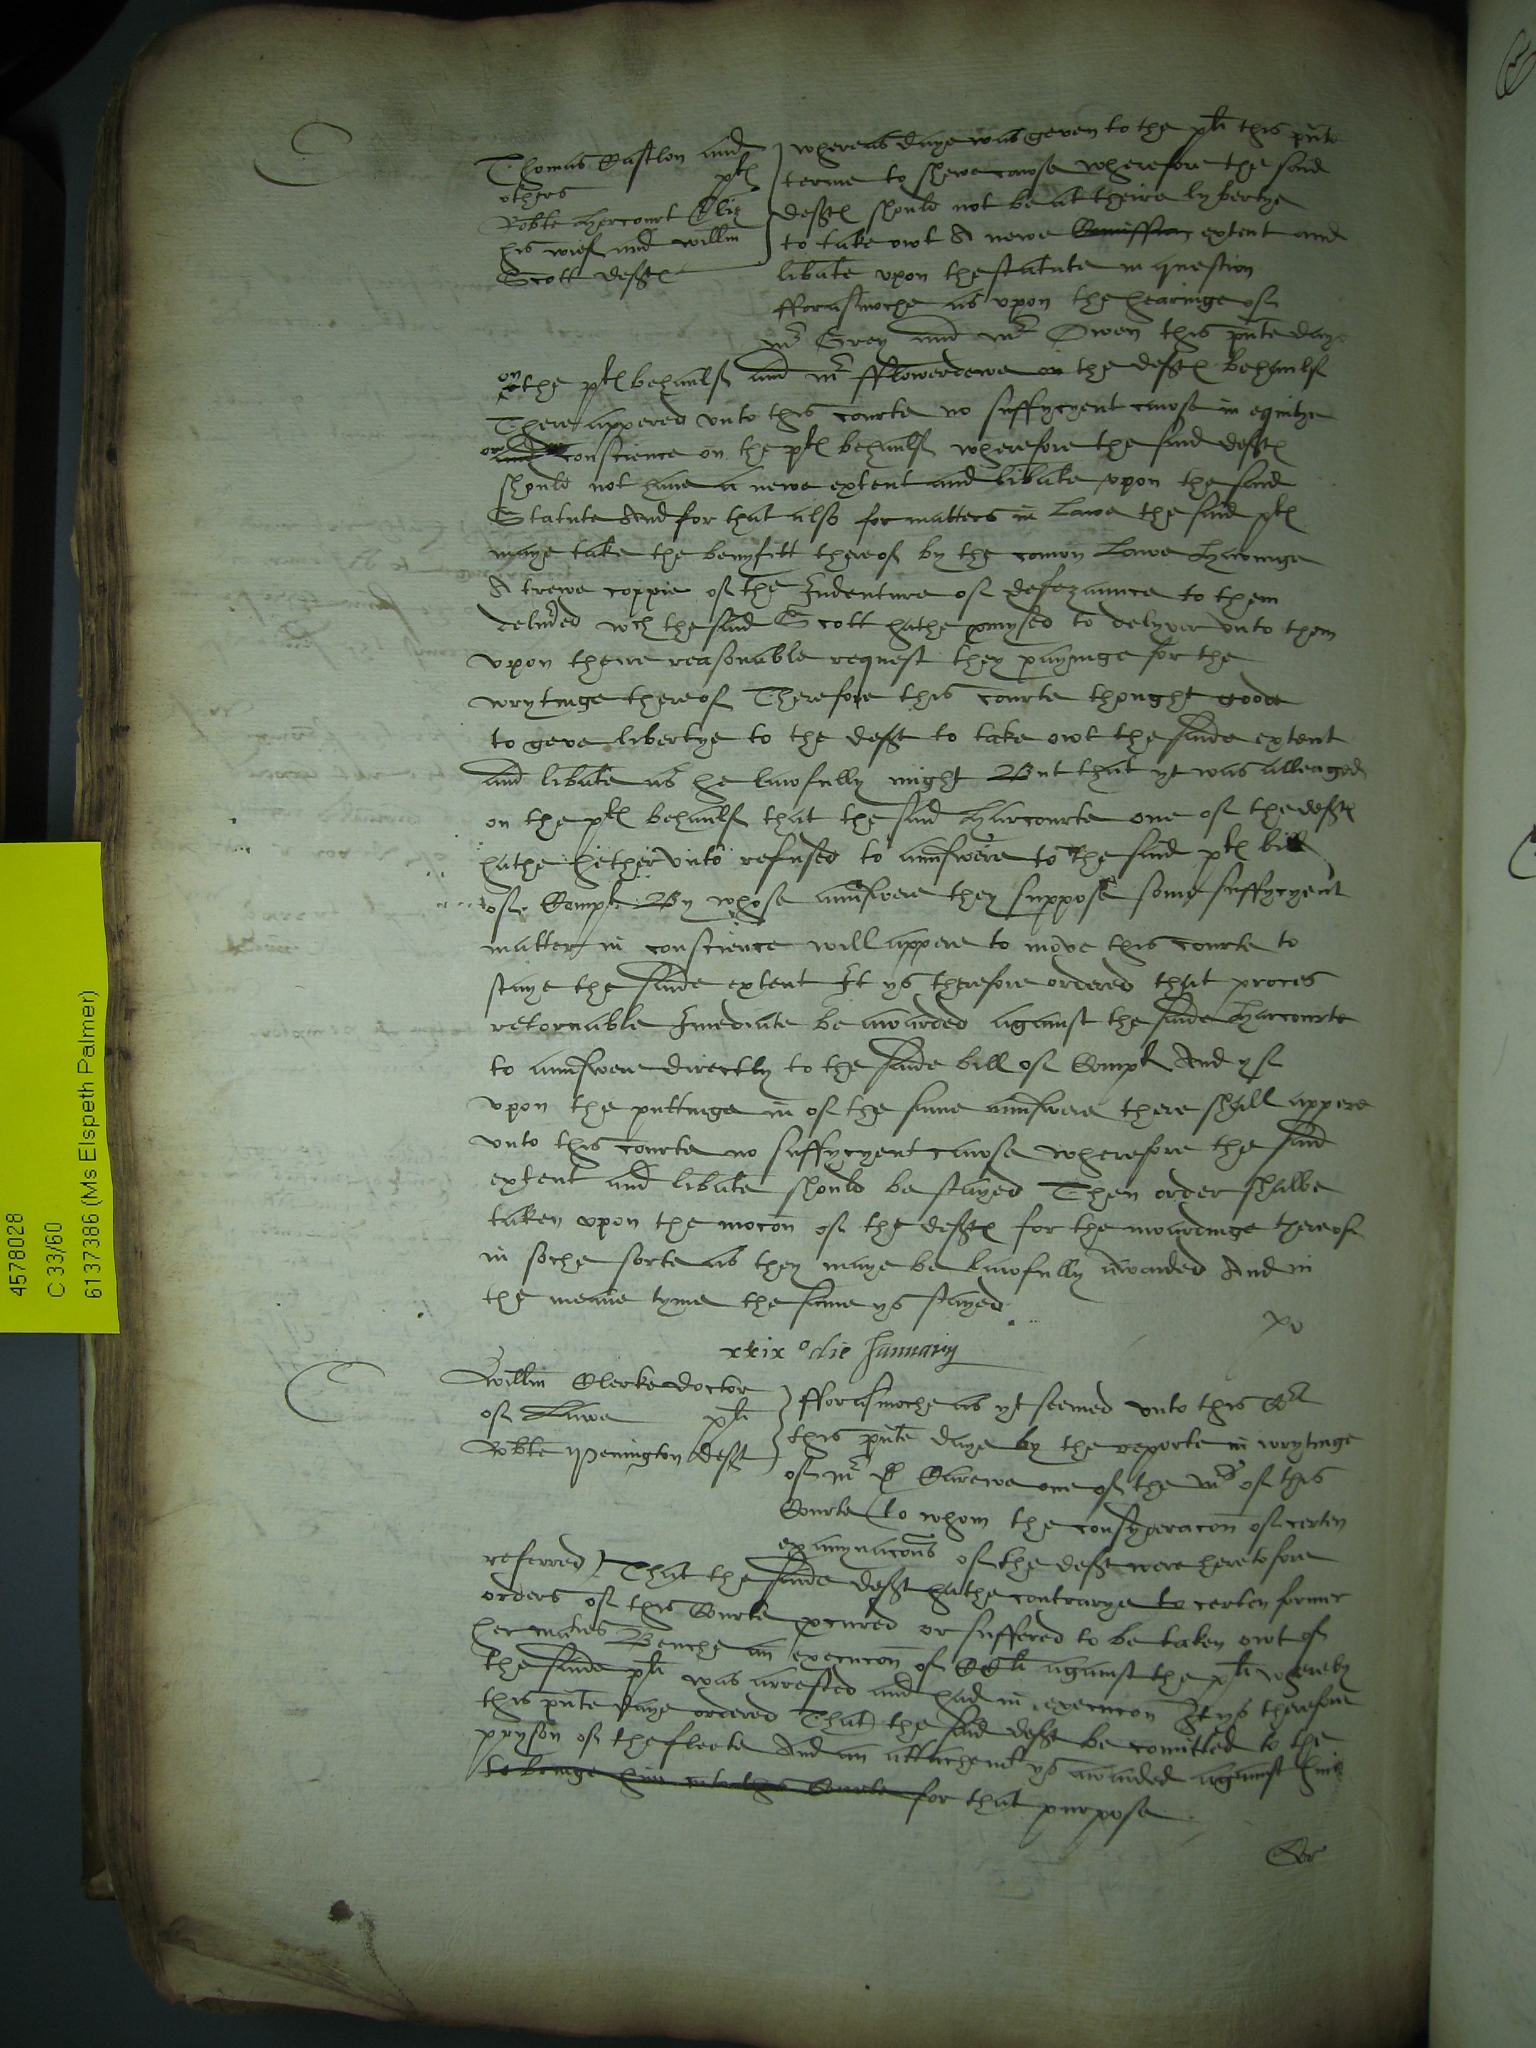 Thomas Castlon and
others plt
Robte Harcourt Eliz
his wief and Willm
Scott deftes
whereas daye was geven to the plt this pnte
terme to shewe cawse wherefore the said
deftes should not be at theire lybertye
to take owt A newe extent and
libate upon the statute in question
fforasmoche as upon the hearinge of
Mr Grey and Mr Owen this pnte daye
on the pltes behaulf and Mr fflowerdewe on the deftes behaulf
There appered unto this courte no suffycyent cawse in equitye
or conscience on the pltes behaulf wherefore the said deftes
should not have a newe extent and libate upon the said
Statute And for that also for matters in Lawe the said pltes
maye take the benyfitt thereof by the comon Lawe Havinge
A trewe coppie of the Indenture of defezaunce to them
delivred wch the said Scott hathe promysed to delyver unto them
upon theire reasonable request they payinge for the
wrytinge thereof Therefore this courte thought goode
to geve libertye to the deft to take owt the saide extent
and libate as he lawfully might But that yt was alleaged
on the pltes behaulf that the said Harcourte one of the deftes
hathe hetherunto refused to aunswere to the said pltes bill
of Complt By whose aunswere they suppose some suffycyent
matter in conscience will appere to move this courte to
staye the saide extent It ys therefore ordered that proces
retornable Imediate be awarded against the saide Harcourte
to aunswere directly to the saide bill of Complt And yf
upon the puttinge in of the same aunswere there shall appere
unto this courte no suffycyent cawse wherefore the said
extent and libate should be stayed Then order shalbe
taken upon the mocon of the deftes for the awardinge thereof
in soche sorte as they maye be lawfully awarded And in
the meane tyme the same ys stayed
xxix o die Januarij
Willm Clerke doctor
of Lawe plt
Robte Penington deft
fforasmoche as yt seemed unto this Cort
this pnte daye by the reporte in wrytinge
of Mr D Carewe one of the Mrs of this
Courte (to whom the consyderacon of certen
examynacons of the deft were heretofore
referred) That the saide deft hathe contrarye to certen former
orders of this Courte procured or suffered to be taken owt of
her Maties Benche an execucon of CCli against the plt whereby
the saide plt was arrested and had in execucon It ys therefore
this pnte daye ordered That the said deft be comitted to the
pryson of the fleete And an attachemt ys awarded against him
to bringe him into this Courte for that purpose
4578028
C 33/60
6137386 (Ms Elspeth Palmer)